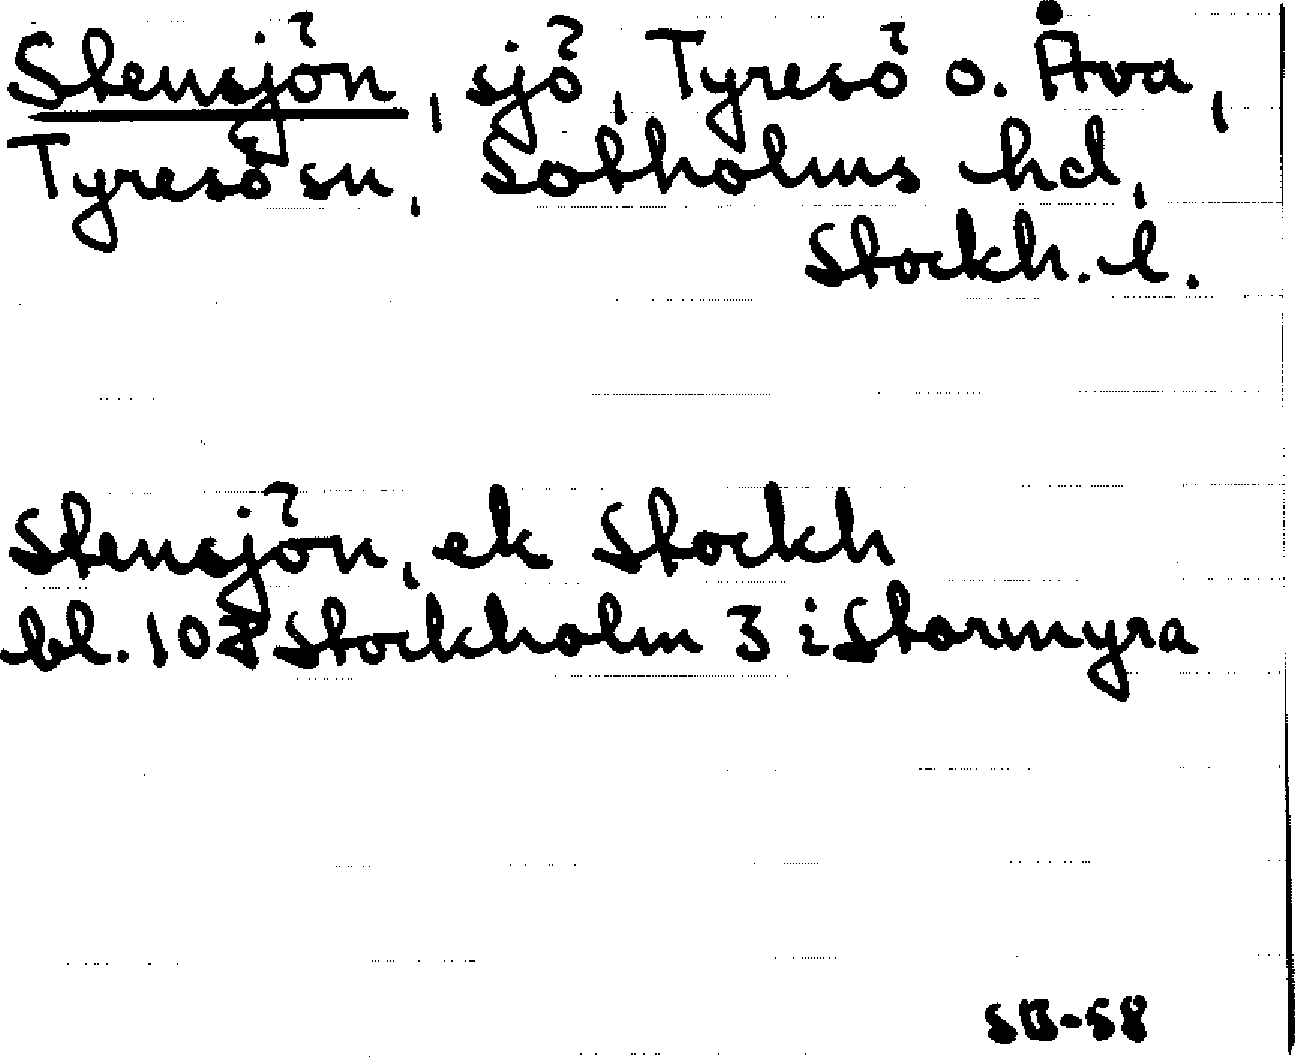 Stensjön, sjö, Tyresö o. Åva,
Tyresö sn, Sotholms hd,
Stockh. l.
Stensjön, ek Stockh
bl. 102 Stockholm 3 i Stormyra
SB-58